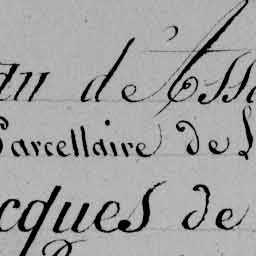 au d'Ass
Parcellaire de L
cques de